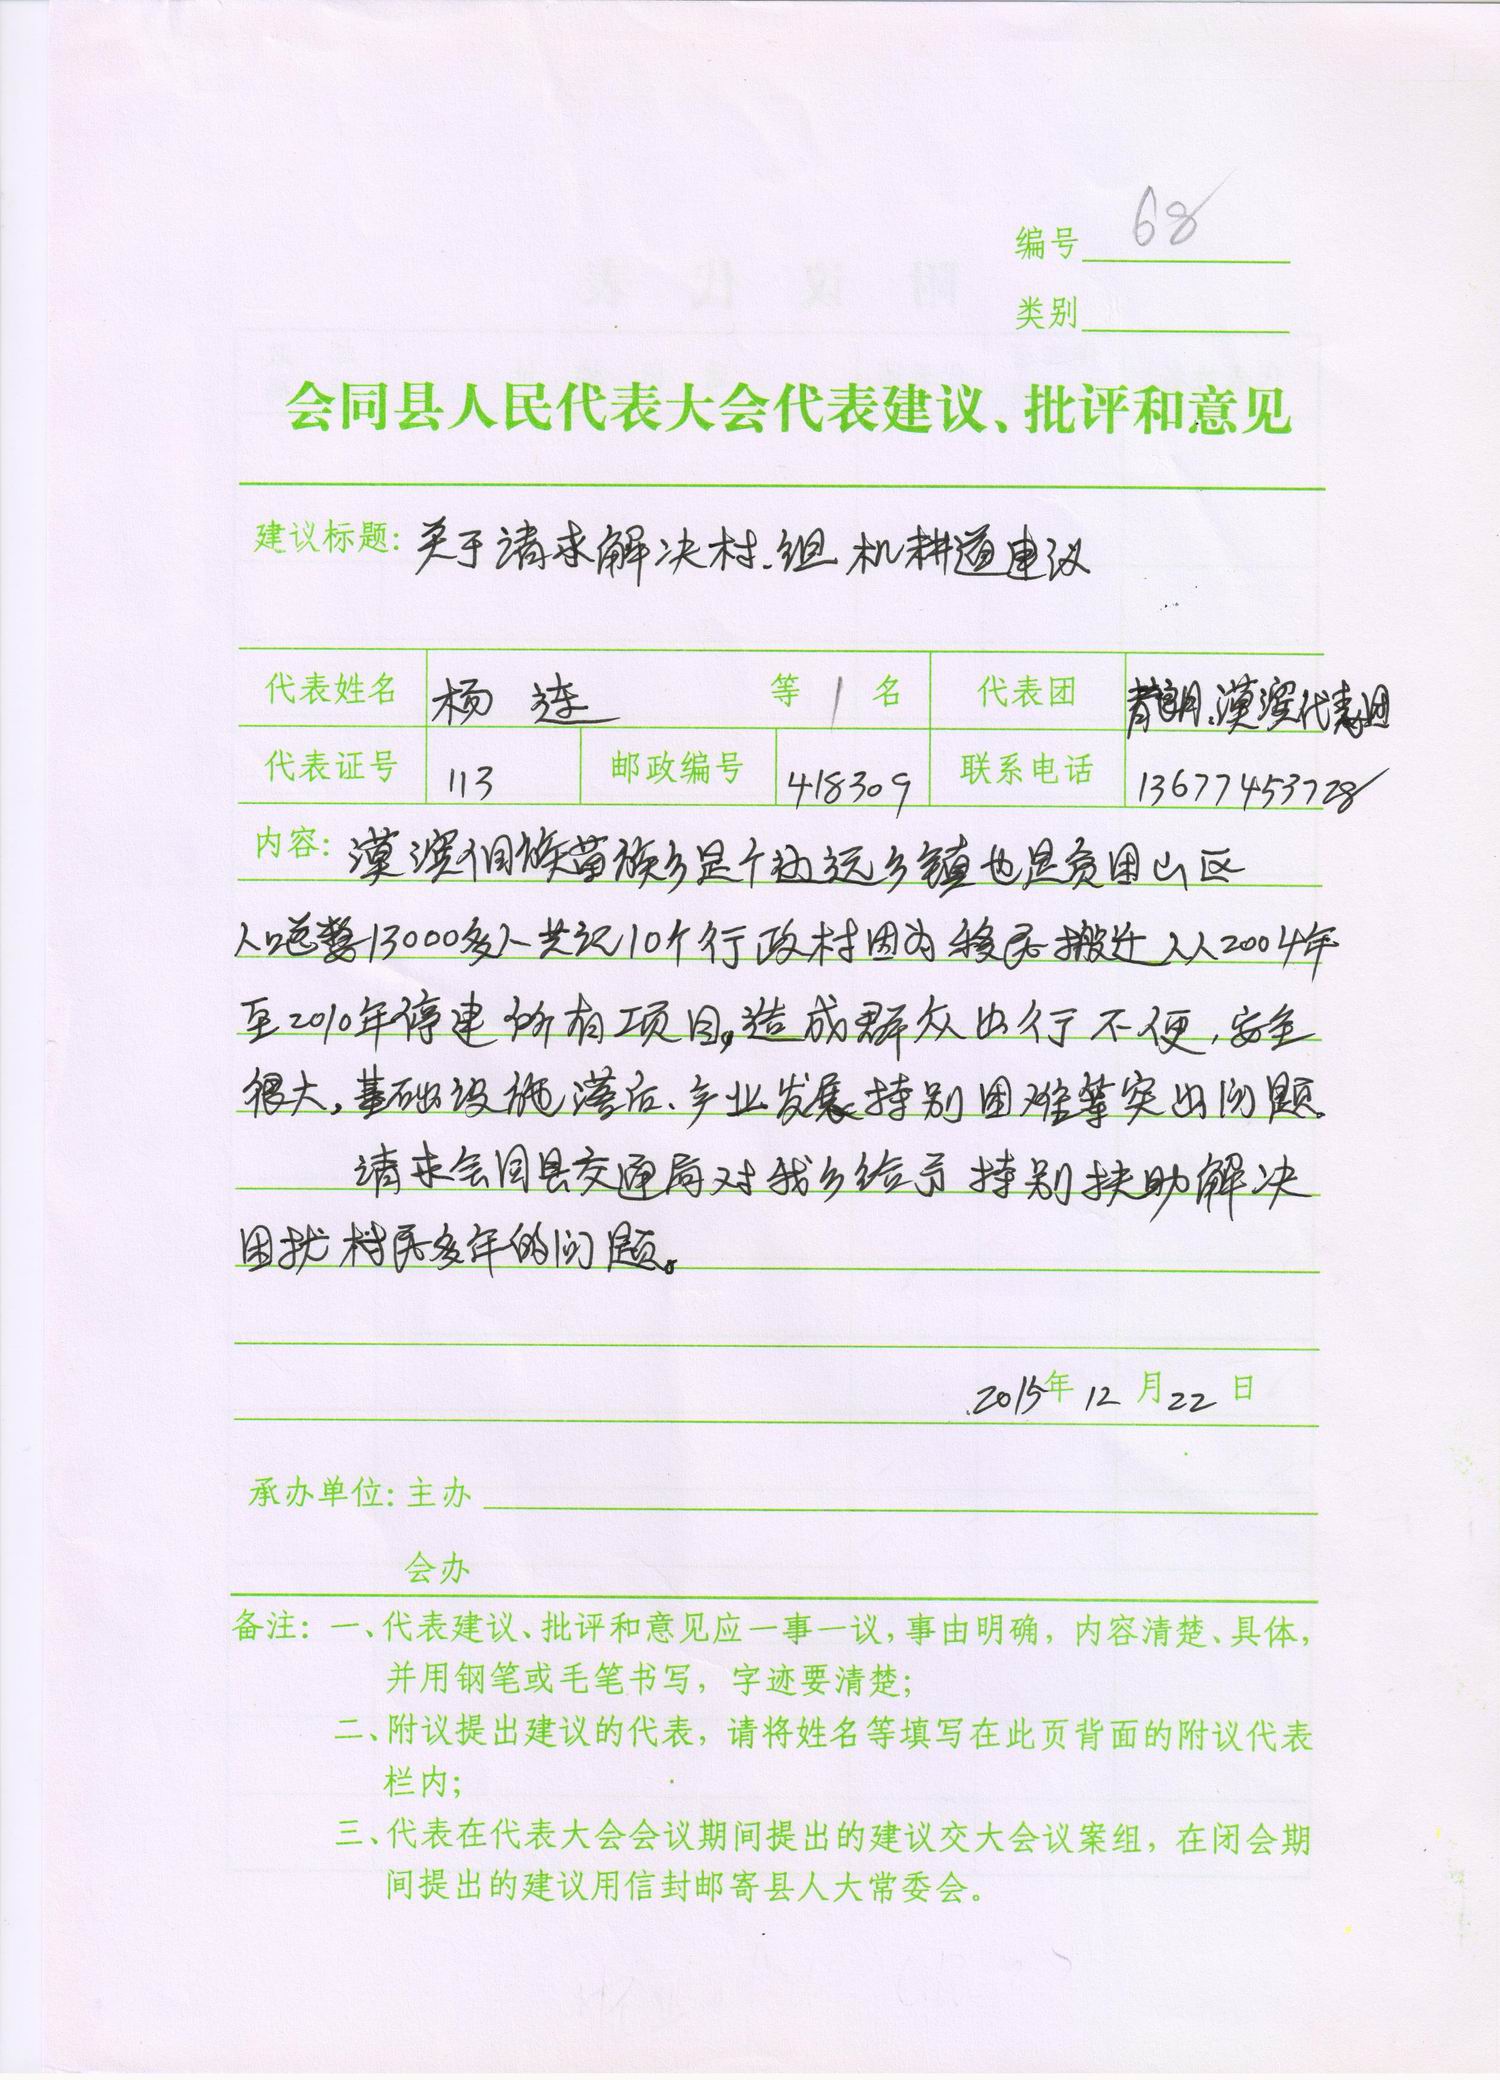 编号 68
类别
会同县人民代表大会代表建议、批评和意见
建议标题: 关于请求解决村.组机耕道建议
代表姓名 杨连 等 1 名 代表团 青朗、漠滨代表团
代表证号 113 邮政编号 418309 联系电话 13677453728
内容: 漠滨侗族苗族乡是个边远乡镇也是贫困山区
人口总数13000多人共记10个行政村因为移民搬迁从2004年
至2010年停建所有项目。造成群众出行不便,安全
很大,基础设施落后、产业发展特别困难等突出问题。
请求会同县交通局对我乡给予特别扶助解决
困扰村民多年的问题。
2015年12月22日
承办单位: 主办
会办
备注: 一、代表建议、批评和意见应一事一议,事由明确,内容清楚、具体,
并用钢笔或毛笔书写,字迹要清楚;
二、附议提出建议的代表,请将姓名等填写在此页背面的附议代表
栏内;
三、代表在代表大会会议期间提出的建议交大会议案组,在闭会期
间提出的建议用信封邮寄县人大常委会。